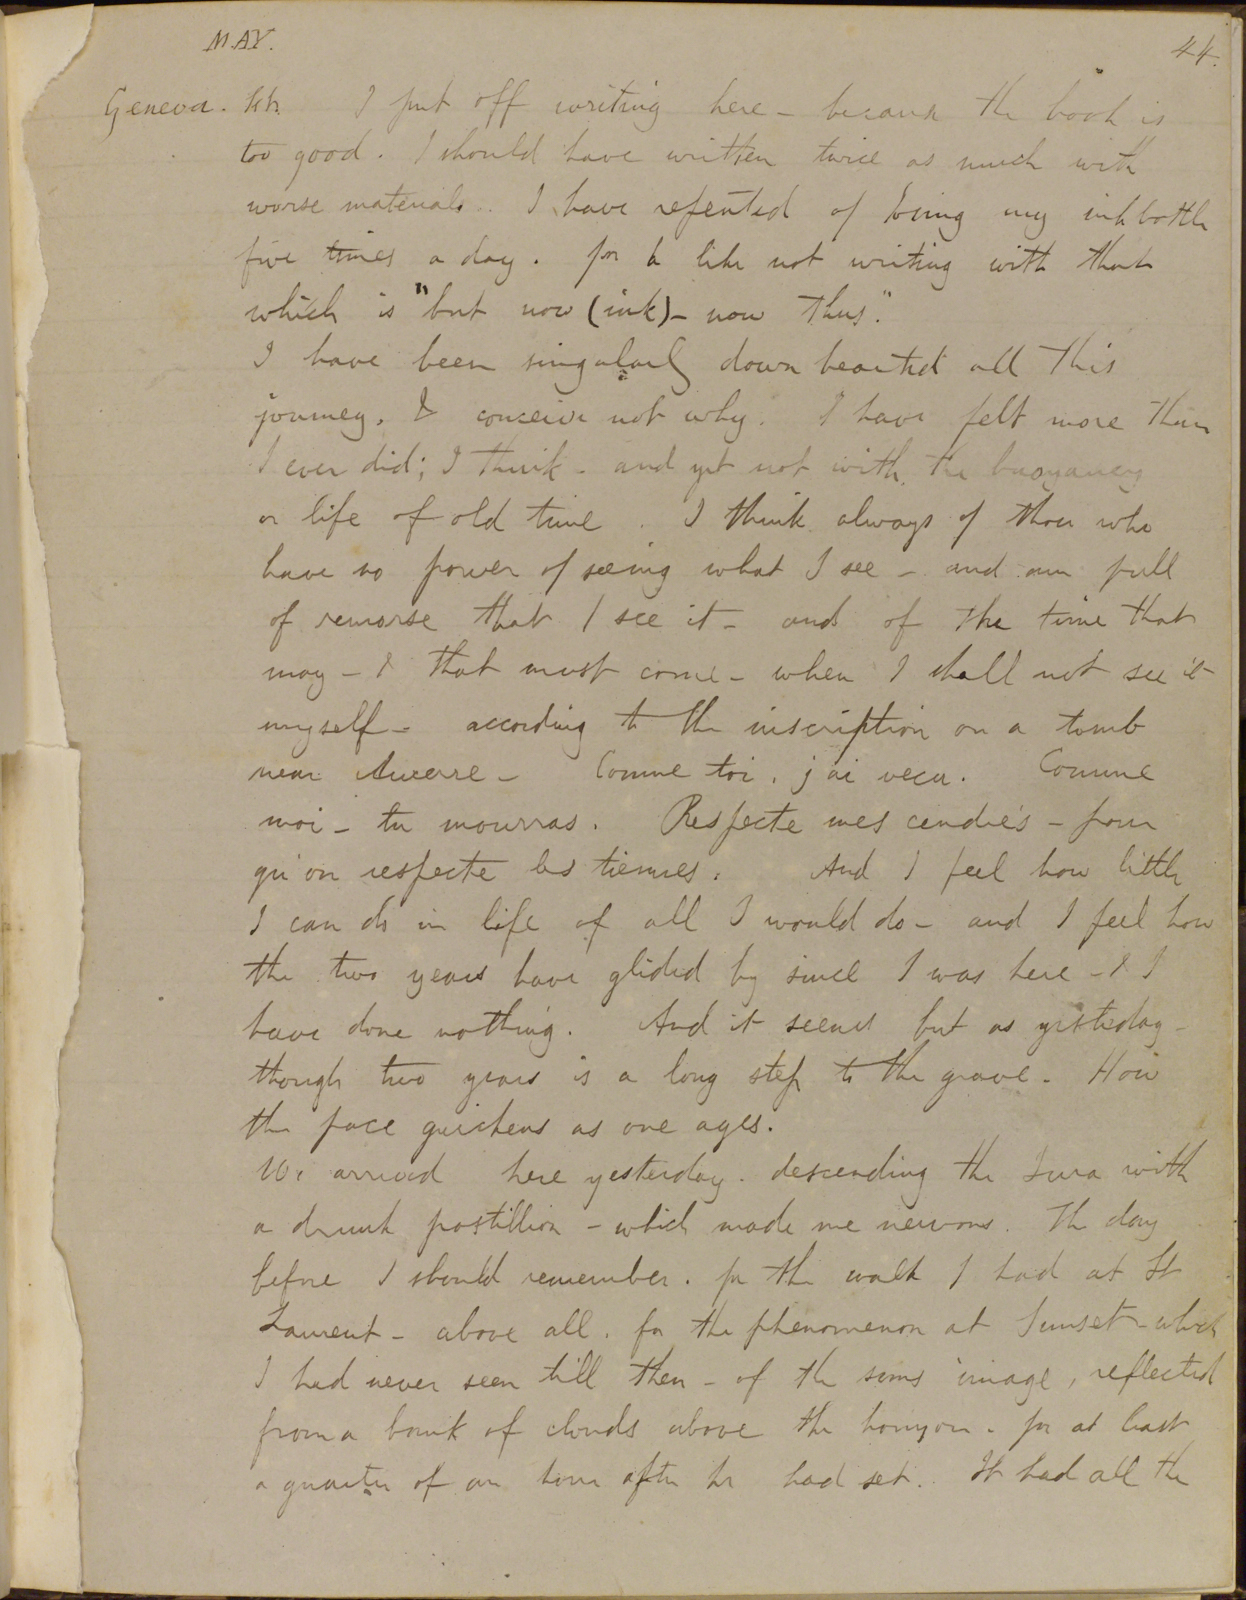 MAY.
44.
Geneva. I put off writing here - because the book is
too good. I should have written twice as much with
worse materials. I have repented of being my ink bottle
five times a day. for I like not writing with that
which is "but now (ink) - now thus".
I have been singularly down hearted all this
journey. I conceive not why. I have felt more than
I ever did; I think - and yet not with the buoyancy
or life of old time. I think always of those who
have no power of seeing what I see - and am full
of remorse that I see it - and of the time that
may - & that must come - when I shall not see it
myself - according to the inscription on a tomb
near Auxerre - Comme toi. j'ai vecu. Comme
moi - tu mourras. Respecte mes cendres - pour
qu'on respecte les tiennes. And I feel how little
I can do in life of all I would do - and I feel how
the two years have glided by since I was here - & I
have done nothing. And it seems but as yesterday -
though two years is a long step to the grave. How
the pace quickens as one ages.
We arrived here yesterday. descending the Jura with
a drunk postillion - which made me nervous. The day
before I should remember. for the walk I had at St
Laurent - above all. for the phenomenon at Sunset - which
I had never seen till then - of the suns image, reflected
from a bank of clouds above the horizon. for at least
a quarter of an hour after he had set. It had all the